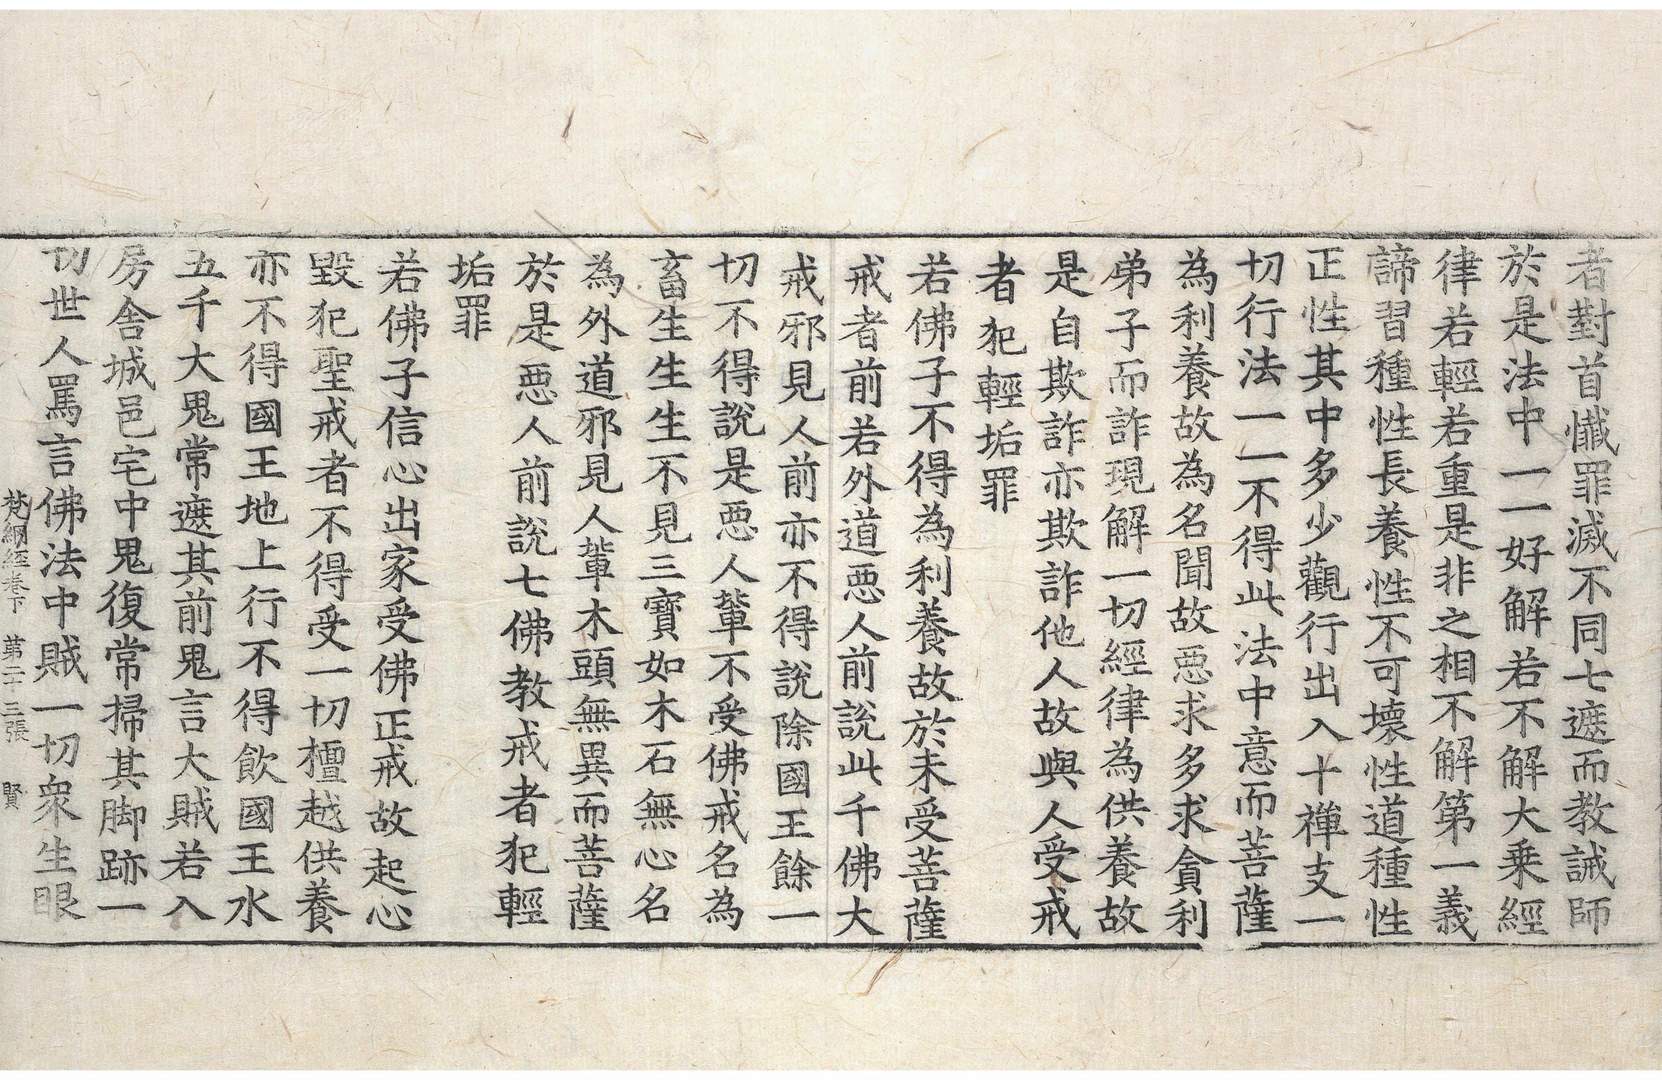 者對首懺罪滅不同七遮而教誡師
於是法中一一好解若不解大乗經
律若輕若重是非之相不解第一義
諦習種性長養性不可壞性道種性
正性其中多少觀行出入十禪支一
切行法一一不得此法中意而菩薩
為利養故為名聞故惡求多求貪利
弟子而詐現解一切經律為供養故
是自欺詐亦欺詐他人故與人受戒
者犯輕垢罪
若佛子不得為利養故於未受菩薩
戒者前若外道惡人前說此千佛大
戒邪見人前亦不得說除國王餘一
切不得說是惡人輩不受佛戒名為
畜生生生不見三寶如木石無心名
為外道邪見人輩木頭無異而菩薩
於是惡人前說七佛教戒者犯輕
垢罪
若佛子信心出家受佛正戒故起心
毀犯聖戒者不得受一切檀越供養
亦不得國王地上行不得飲國王水
五千大鬼常遮其前鬼言大賊若入
房舍城邑宅中鬼復常掃其脚跡一
切世人罵言佛法中賊一切衆生眼
梵網經卷下 第二十三張 賢